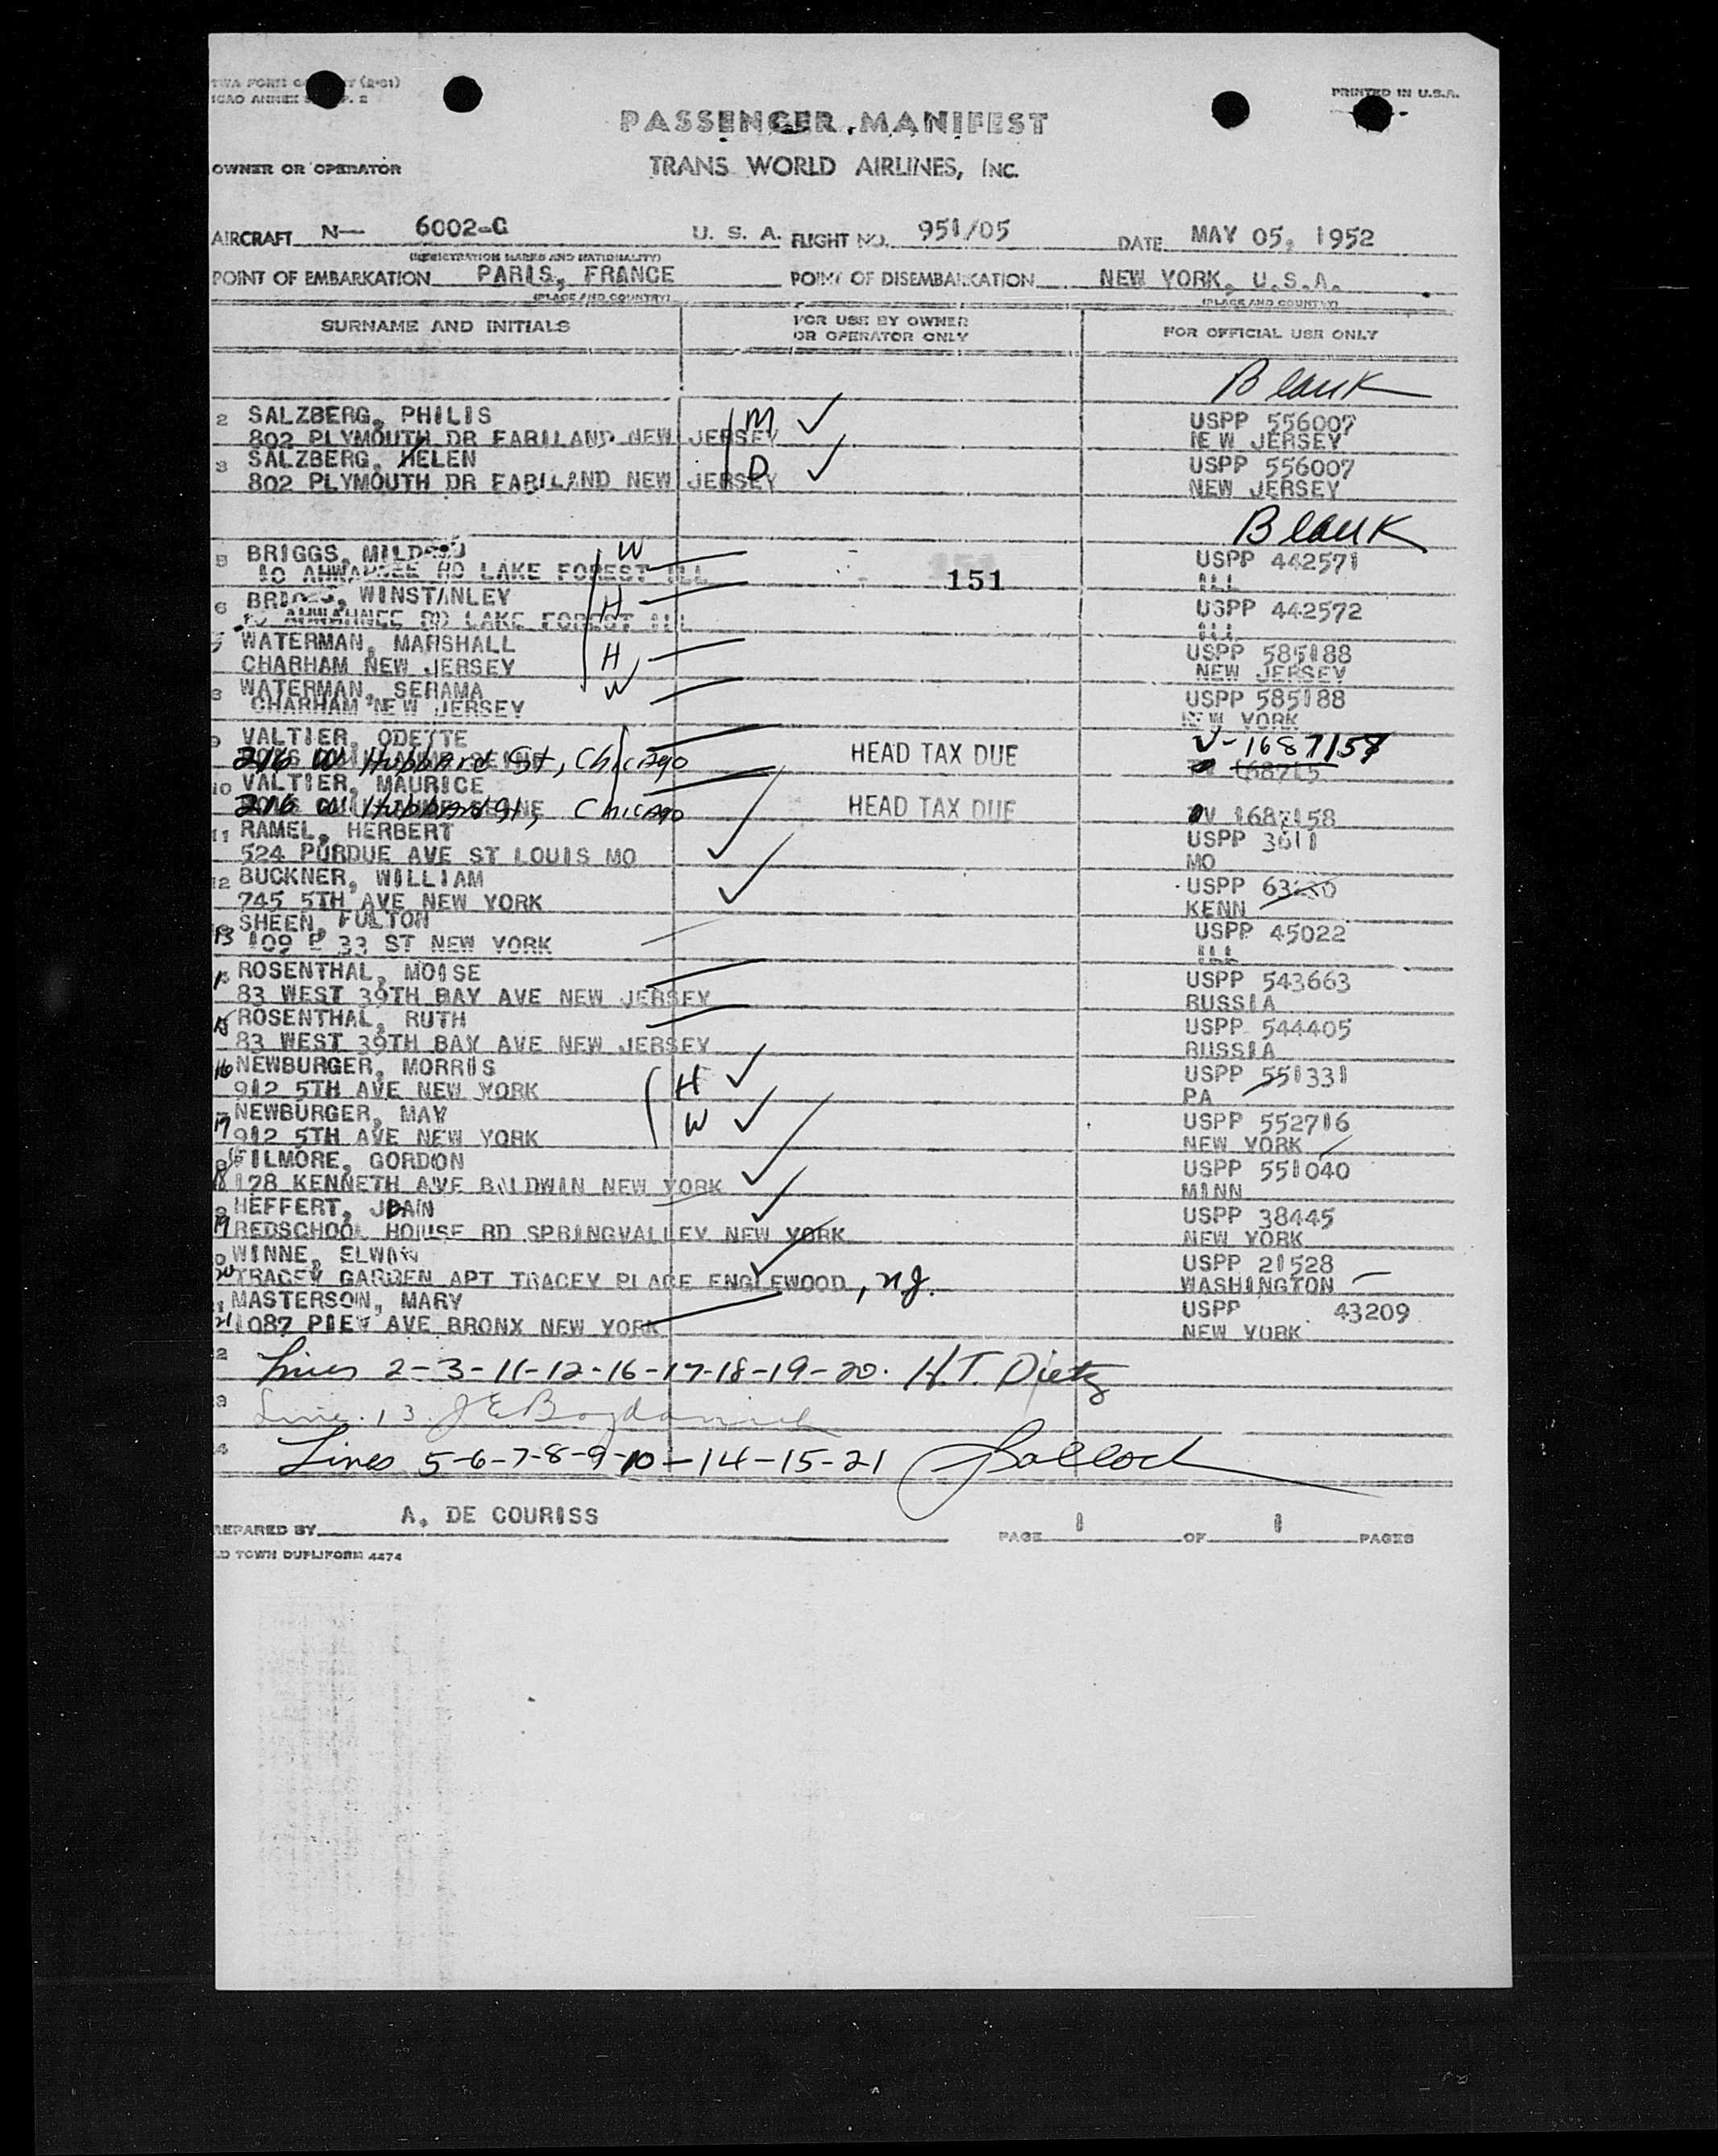 ICAO ANNEX
PRINTED IN U.S.A.
PASSENGER MANIFEST
OWNER OR OPERATOR TRANS WORLD AIRLINES, INC.
AIRCRAFT N— 6002-C U. S. A. FLIGHT NO. 951/05 DATE MAY 05, 1952
(REGISTRATION MARKS AND NATIONALITY)
POINT OF EMBARKATION PARIS, FRANCE POINT OF DISEMBARKATION NEW YORK, U.S.A.
(PLACE AND COUNTRY) (PLACE AND COUNTRY)
SURNAME AND INITIALS FOR USE BY OWNER OR OPERATOR ONLY FOR OFFICIAL USE ONLY
Blank
2 SALZBERG, PHILIS M ✓ USPP 556007
802 PLYMOUTH DR FARILAND NEW JERSEY NEW JERSEY
3 SALZBERG, HELEN D ✓ USPP 556007
802 PLYMOUTH DR FARILAND NEW JERSEY NEW JERSEY
Blank
5 BRIGGS, MILDRED W USPP 442571
AHWAHNEE RD LAKE FOREST ILL 151 ILL
6 BRIGGS, WINSTANLEY H USPP 442572
AHWAHNEE RD LAKE FOREST ILL ILL
WATERMAN, MARSHALL H USPP 585188
CHARHAM NEW JERSEY NEW JERSEY
8 WATERMAN, SERAMA W USPP 585188
CHARHAM NEW JERSEY NEW YORK
9 VALTIER, ODETTE V-1687158
216 W Hubbard St, Chicago HEAD TAX DUE 168715
10 VALTIER, MAURICE
216 W Hubbard St, Chicago HEAD TAX DUE V 1687158
11 RAMEL, HERBERT ✓ USPP 3611
524 PURDUE AVE ST LOUIS MO MO
12 BUCKNER, WILLIAM ✓ USPP 63230
745 5TH AVE NEW YORK KENN
13 SHEEN, FULTON USPP 45022
109 E 33 ST NEW YORK ILL
ROSENTHAL, MOISE USPP 543663
83 WEST 39TH BAY AVE NEW JERSEY RUSSIA
15 ROSENTHAL, RUTH USPP 544405
83 WEST 39TH BAY AVE NEW JERSEY RUSSIA
16 NEWBURGER, MORRIS H ✓ USPP 551331
912 5TH AVE NEW YORK PA
17 NEWBURGER, MAY W ✓ USPP 552716
912 5TH AVE NEW YORK NEW YORK
GILMORE, GORDON ✓ USPP 551040
18 128 KENNETH AVE BALDWIN NEW YORK MINN
HEFFERT, JEAN ✓ USPP 38445
19 REDSCHOOL HOUSE RD SPRINGVALLEY NEW YORK NEW YORK
WINNE, ELWIN ✓ USPP 21528
20 TRACEY GARDEN APT TRACEY PLACE ENGLEWOOD, N.J. WASHINGTON
MASTERSON, MARY USPP 43209
21 1087 AVE BRONX NEW YORK NEW YORK
2 Lines 2-3-11-12-16-17-18-19-20. H.T. Dietz
3 Line 13.
4 Lines 5-6-7-8-9-10-14-15-21
PREPARED BY A. DE COURISS PAGE 1 OF 1 PAGES
OLD TOWN DUPLIFORM 4474